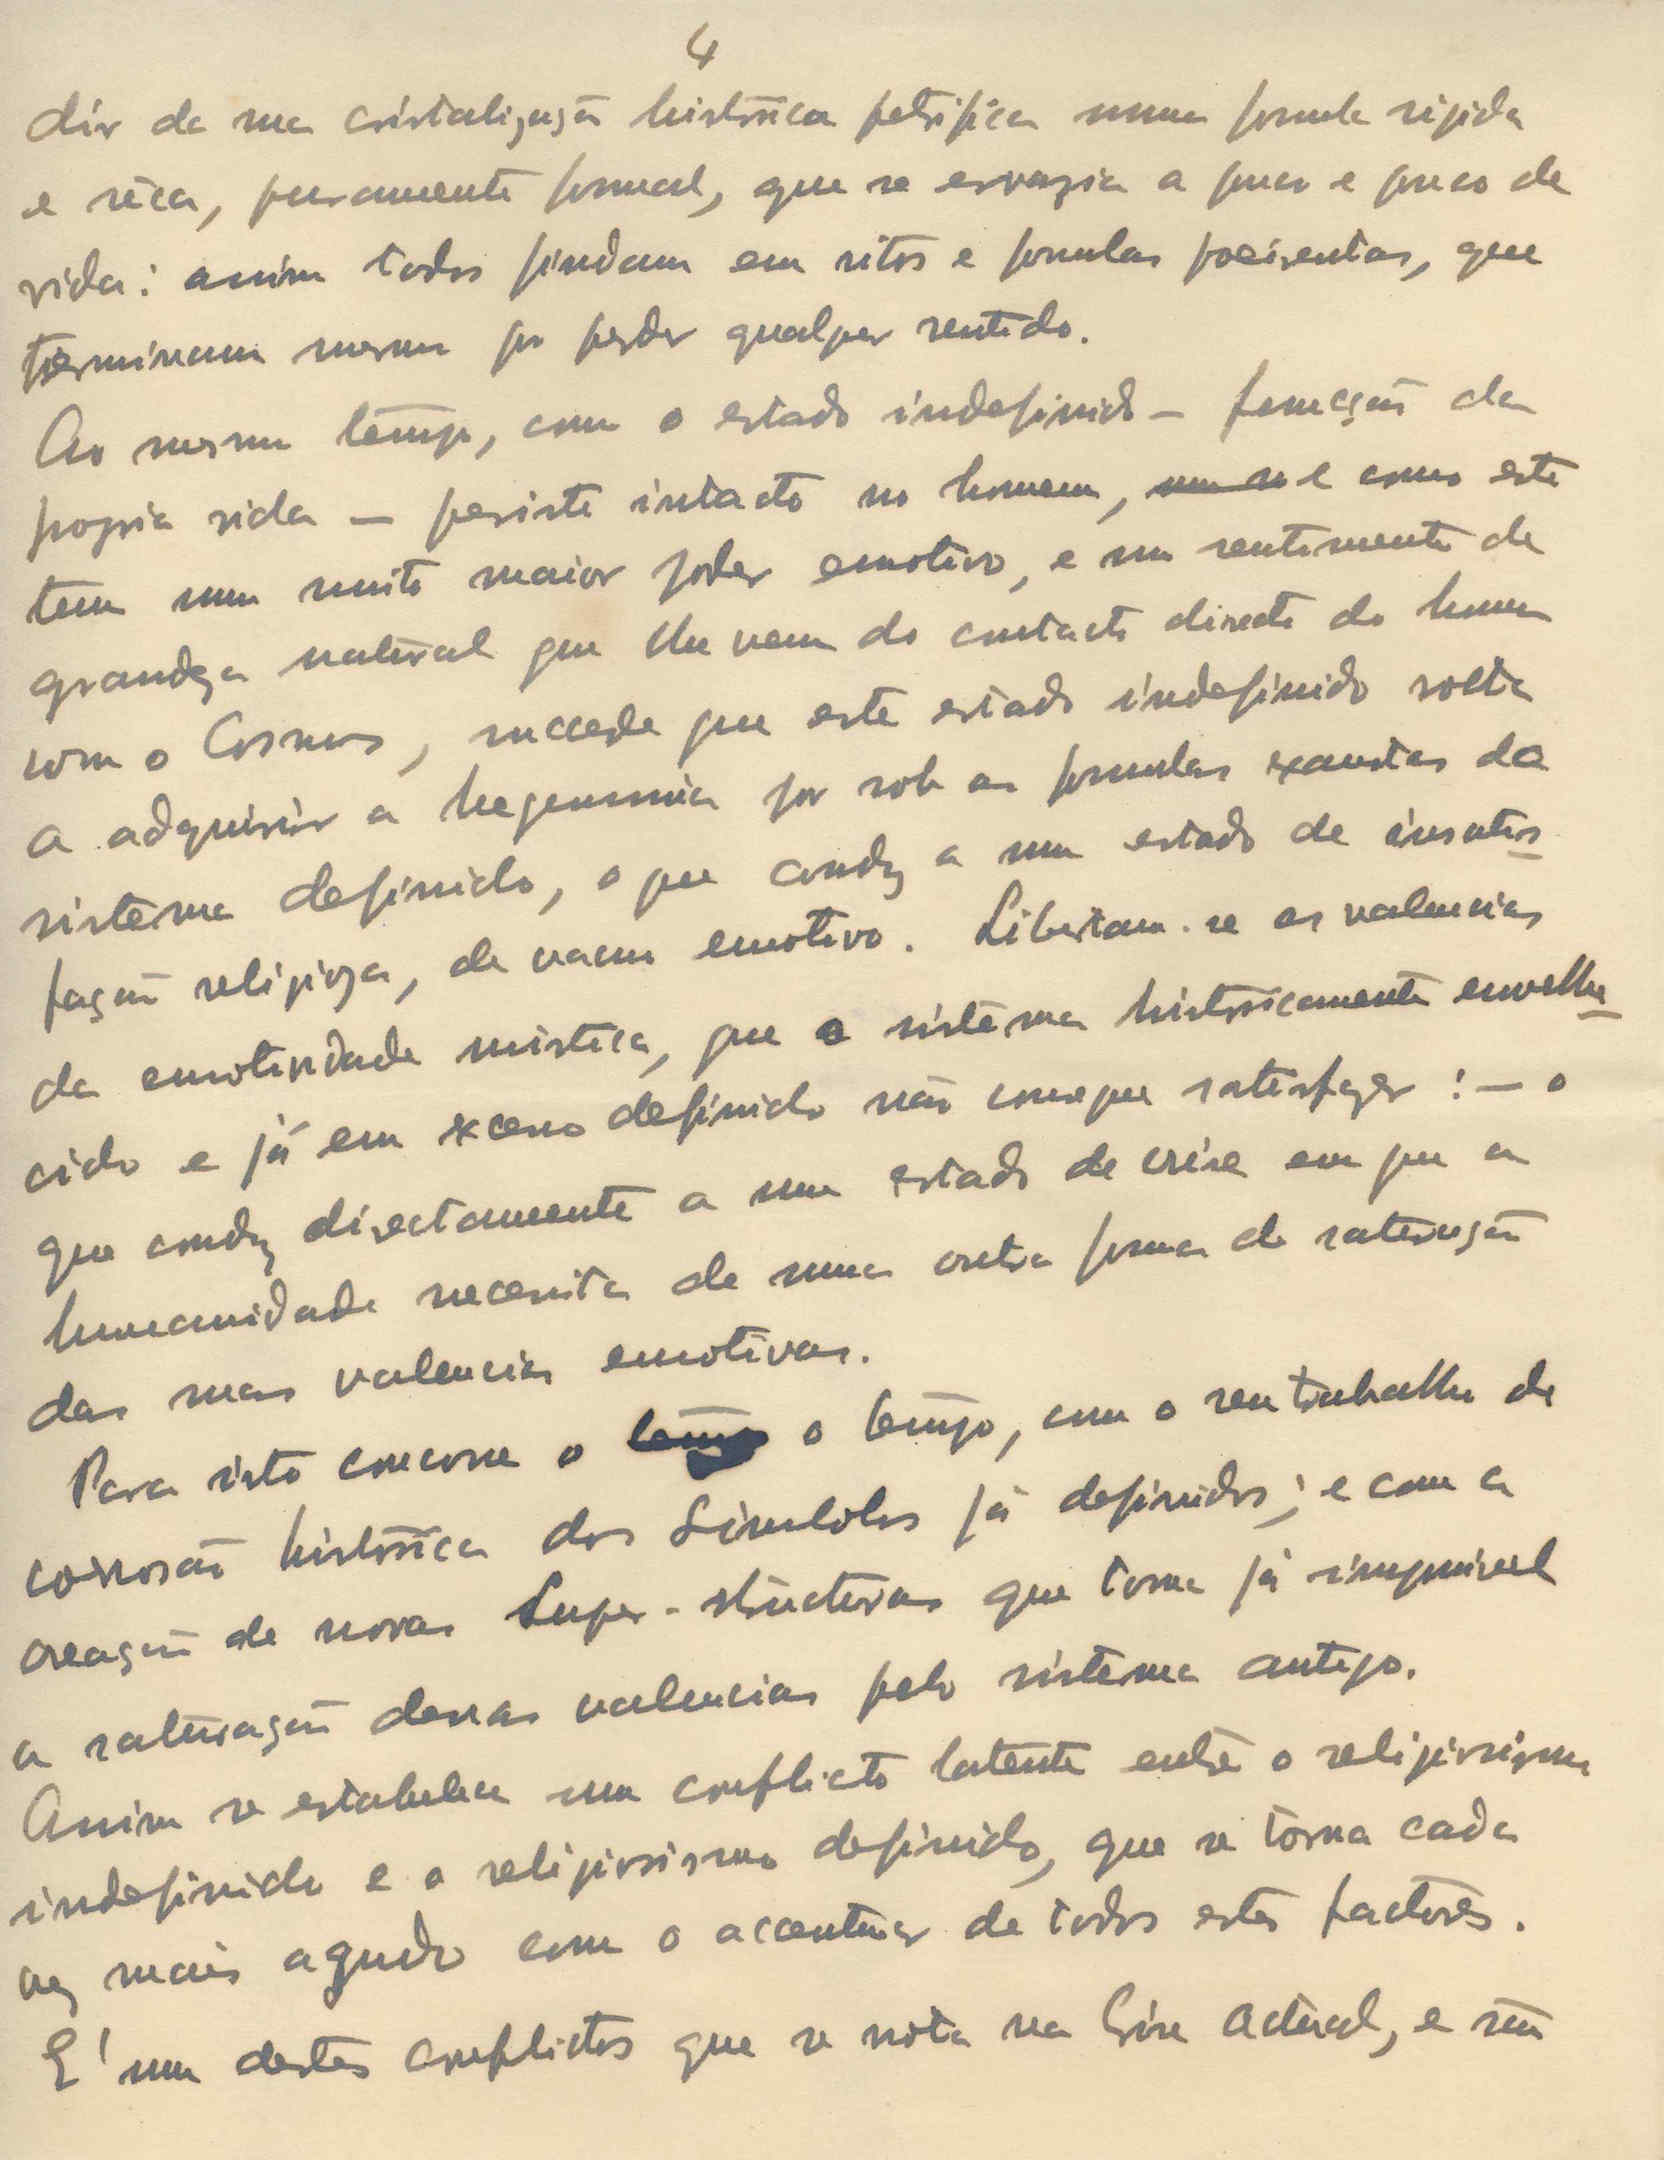 4
dir da sua cristalização histórica petrifica numa formula rigida
e sêca, puramente formal, que se esvazia a pouco e pouco de
vida: assim todos findam em ritos e formulas poeirentas, que
terminam mesmo por perder qualquer sentido.
Ao mesmo tempo, como o estado indefinido — funcção da
propria vida — persiste intacto no homem, e como este
tem um muito maior poder emotivo, e um sentimento de
grandeza natural que lhe vem do contacto directo do homem
com o Cosmos, succede que este estado indefinido volta
a adquirir a hegemonia por sob as formulas exaustas do
sistema definido, o que conduz a um estado de insatis
fação religiosa, de vacuo emotivo. Libertam-se as valencias
da emotividade mistica, que o sistema históricamente envelhe
cido e já em excesso definido não consegue satisfazer: — o
que conduz directamente a um estado de crise em que a
humanidade necessita de uma outra forma de saturação
das suas valencias emotivas.
Para isto concorre o o tempo, com o seu trabalho de
corrosão histórica dos Simbolos já definidos; e com a
creação de novas Super-structuras que torna já impossivel
a saturação dessas valencias pelo sistema antigo.
Assim se estabelece um conflicto latente entre o religiosismo
indefinido e o religiosismo definido, que se torna cada
vez mais agudo com o accentuar de todos estes factores.
E' um destes conflictos que se nota na Crise actual, e são